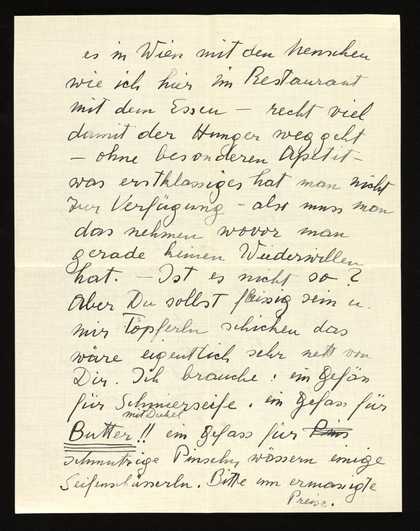 es in Wien mit den Menschen
wie ich hier im Restaurant
mit dem Essen – recht viel
damit der Hunger weggeht
– ohne besonderen Apetit –
was erstklassiges hat man nicht
zur Verfügung – also muss man
das nehmen wovor man
gerade keinen Wiederwillen
hat. – Ist es nicht so?
Aber Du sollst fleissig sein u.
mir Töpferln schicken das
wäre eigentlich sehr nett von
Dir. Ich brauche: ein Gefäss
für Schmierseife. ein Gefass für
mit Deckel
Butter!! ein Gefass für
schmutzige Pinseln, wässern einige
Seifenschüsserln. Bitte um ermässigte
Preise.